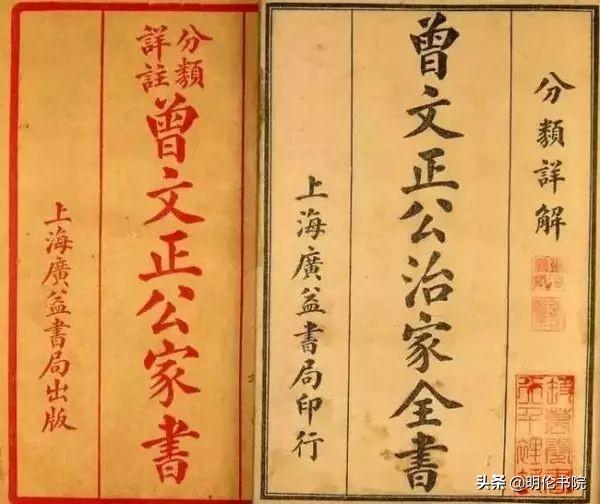 分類
詳註
曾文正公家書
上海廣益書局出版
分類詳解
曾文正公治家全書
上海廣益書局印行
头条 @明伦书院